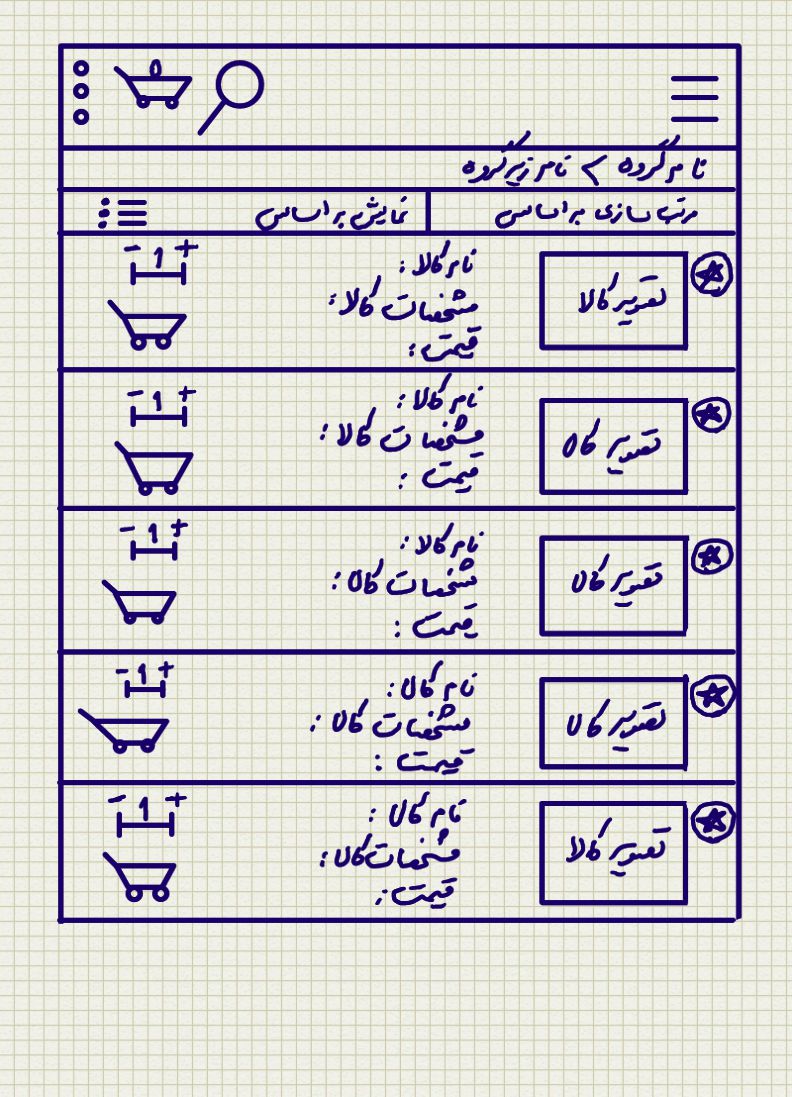 0
نام گروه > نام زیرگروه
مرتب سازی بر اساس
نمایش بر اساس
تصویر کالا
نام کالا :
مشخصات کالا :
قیمت :
- 1 +
تصویر کالا
نام کالا :
مشخصات کالا :
قیمت :
- 1 +
تصویر کالا
نام کالا :
مشخصات کالا :
قیمت :
- 1 +
تصویر کالا
نام کالا :
مشخصات کالا :
قیمت :
- 1 +
تصویر کالا
نام کالا :
مشخصات کالا :
قیمت :
- 1 +